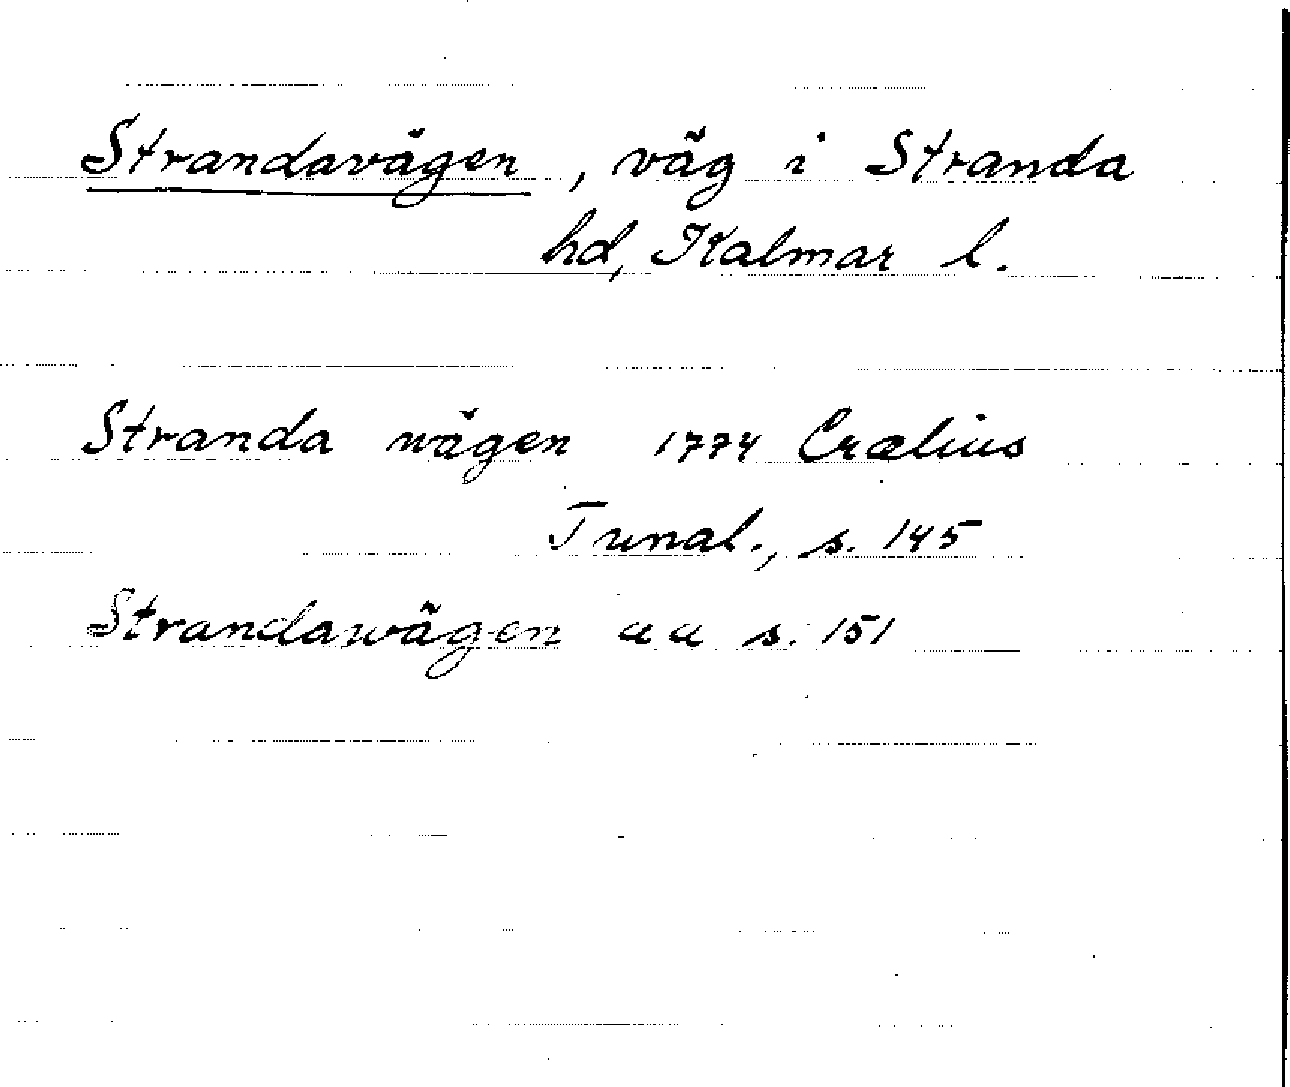 Strandavägen, väg i Stranda
hd, Kalmar l.
Stranda wägen 1774 Crælius
Tunal., s. 145
Strandawägen aa s. 151